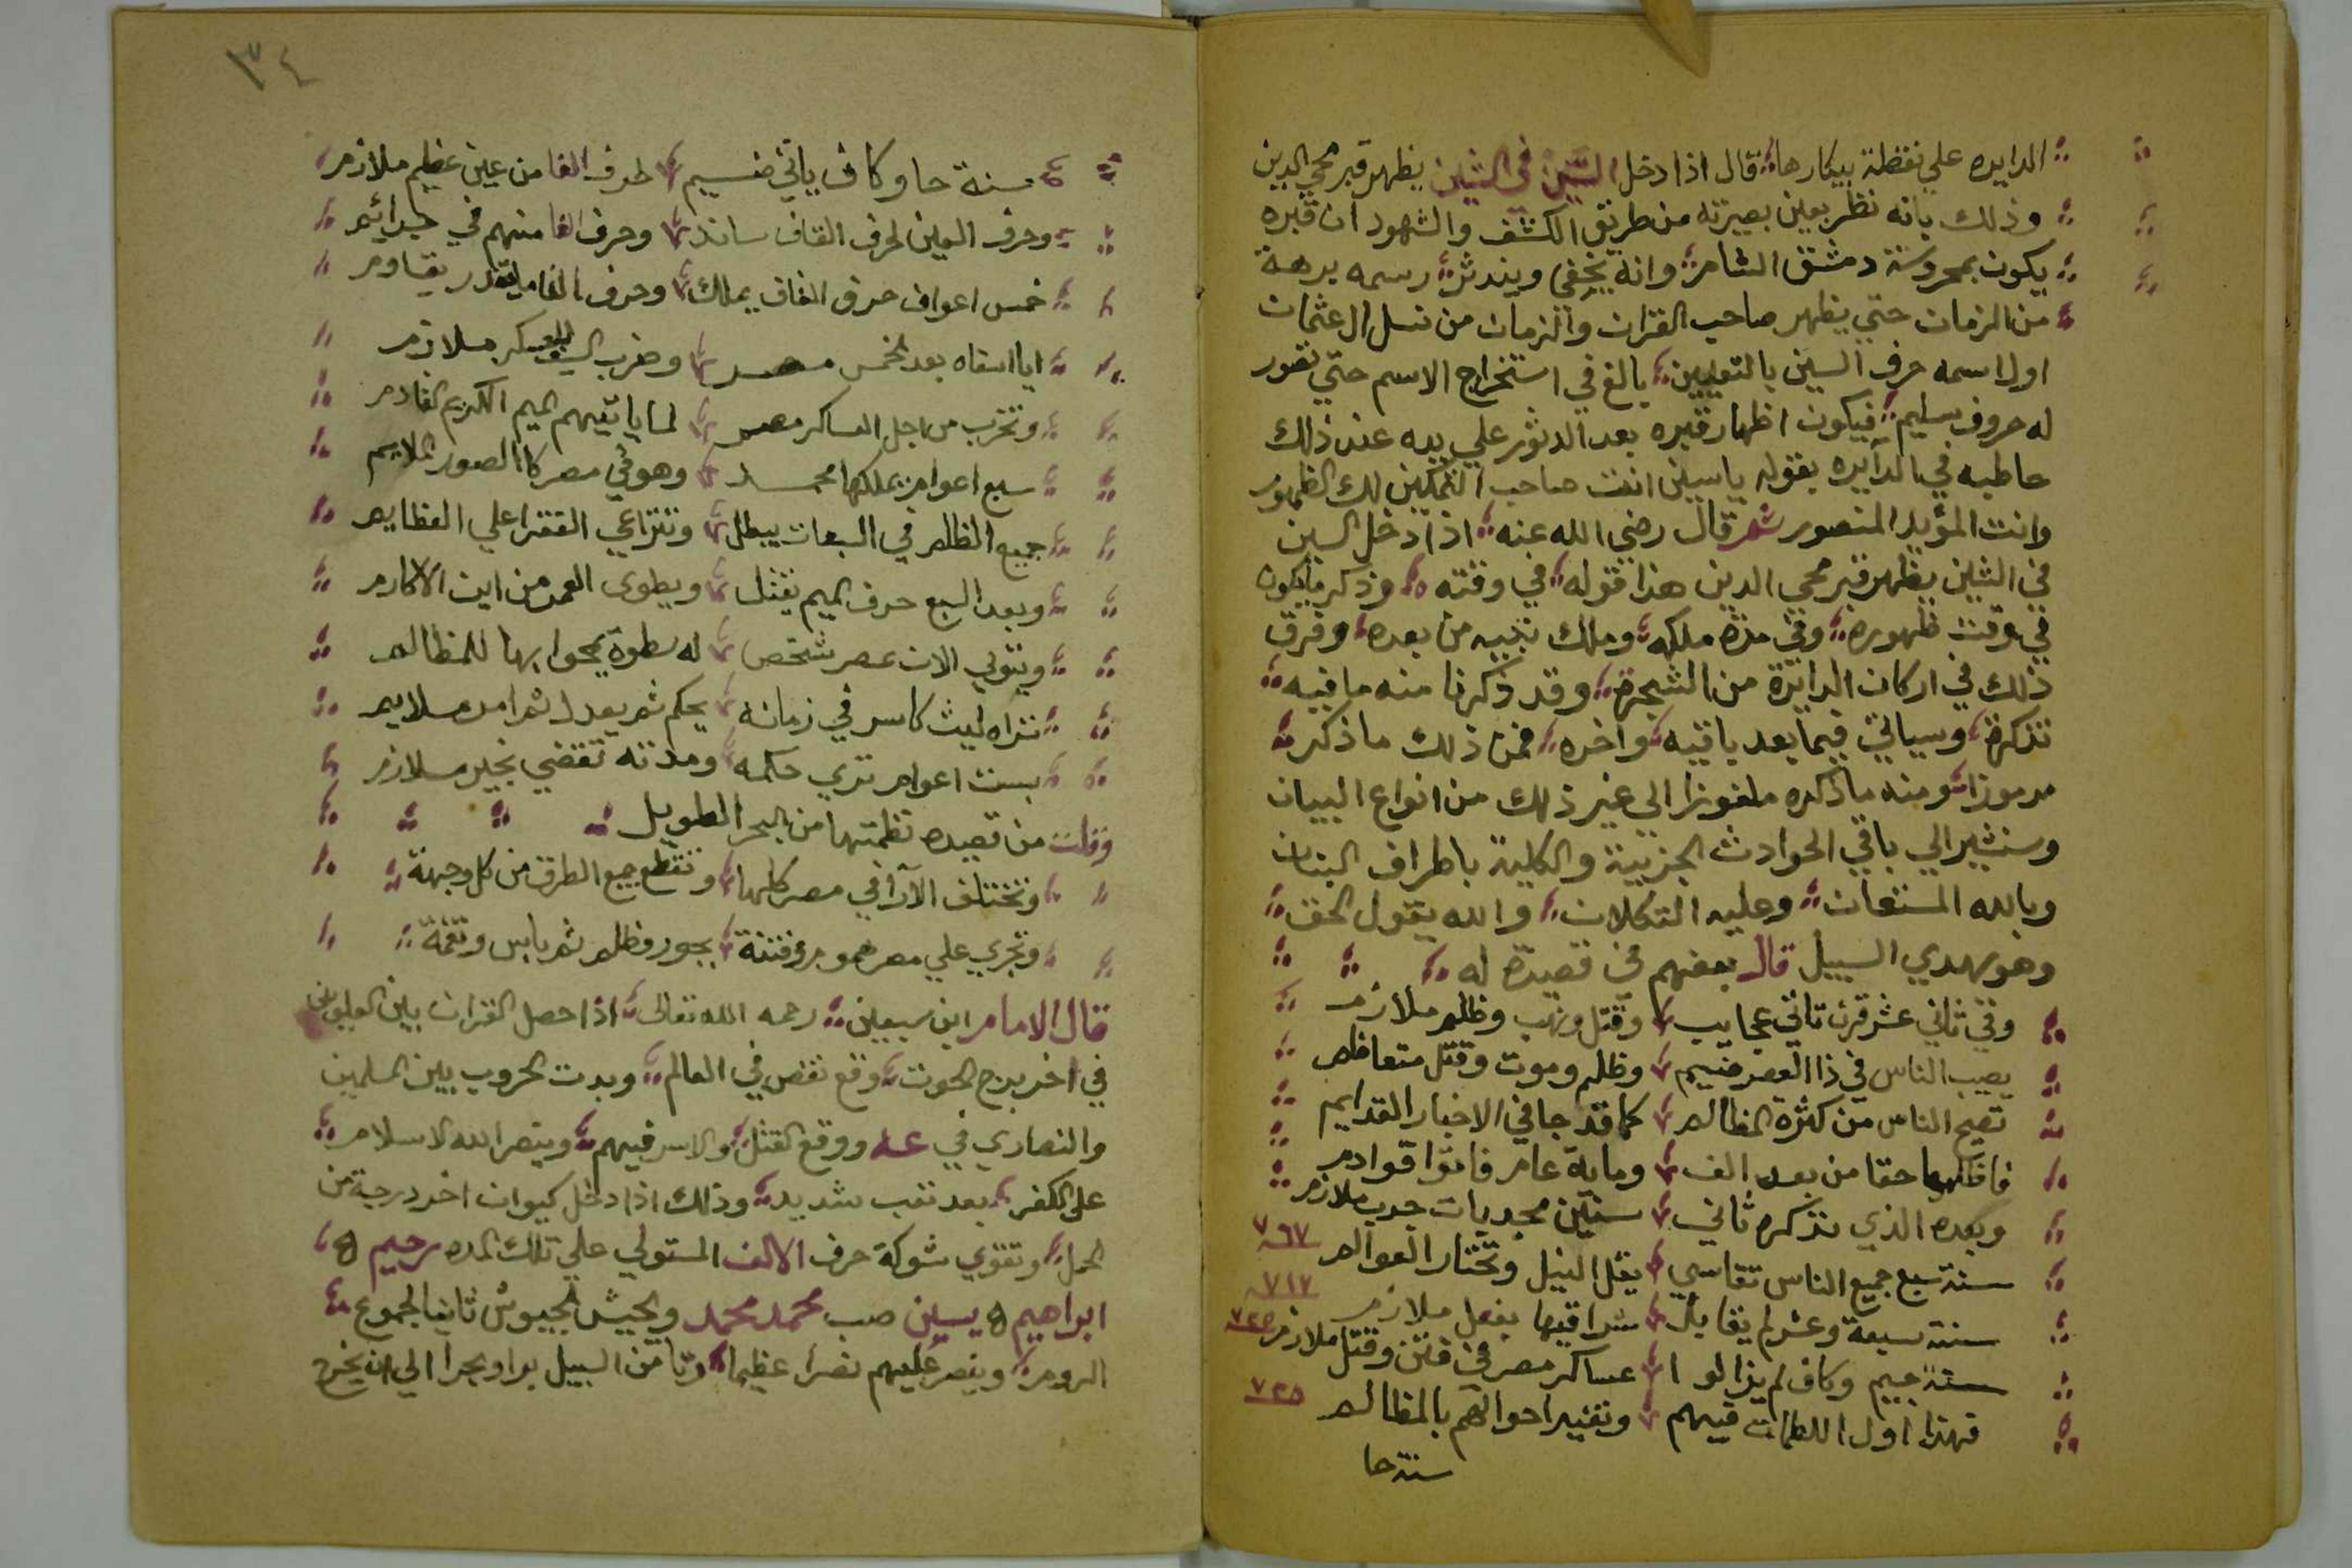 الدايره علي نقطة بيكارها قال اذا دخل السين في الشين يظهر قبر محي الدين
وذلك بانه نظر بعين بصيرته من طريق الكشف والشهود ان قبره
يكون بمحروسة دمشق الشام وانه يخفي ويندثر رسمه برهة
من الزمان حتي يظهر صاحب القران والزمان من نسل ال عثمان
اول اسمه حرف السين بالتعيين بالغ في استخراج الاسم حتي تقور
له حروف سليم فيكون اظهار قبره بعد الدثور علي يده عند ذلك
خاطبه في الدايره بقوله ياسين انت صاحب التمكين لك الظهور
وانت المؤيد المنصور ثم قال رضي الله عنه اذا دخل السين
في الشين يظهر قبر محي الدين هذا قوله في وقته وذكر مايكون
في وقت ظهوره وفي مدة ملكه وملك بنيه من بعده وفرق
ذلك في اركان الدايرة من الشجرة وقد ذكرنا منه ما فيه
تذكرة وسياتي فيما بعد باقيه واخره فمن ذلك ما ذكر
مرموزا ومنه ما ذكره ملغوزا الي غير ذلك من انواع البيان
وسنشير الي باقي الحوادث الجزيية والكلية باطراف البنان
وبالله المستعان وعليه التكلان والله يقول الحق
وهو يهدي السبيل قال بعضهم في قصيدة له
وفي ثاني عشر قرن تاتي عجايب وقتل ونهب وظلم ملازم
يصيب الناس في ذا العصر ضيم وظلم وموت وقتل متعاظم
تصيح الناس من كثرة المظالم كما قد جا في الاخبار القدايم
حقا من بعد الف وماية عام فاتوا قوادم
وبعده الذي نذكره ثاني سنين مجدبات جدب ملازم
سنة سبع جميع الناس تقاسي يقل النيل وتحتار العوالم ٧٦٧
سنة سبعة وعشر لم يقابل شراقيها بفعل ملازم ٧١٧
سنة جيم وكاف لم يزالوا عساكر مصر في فتن وقتل ملازم ٧٢٥
فهذا اول الظلمات فيهم وتغير احوالهم بالمظالم ٧٢٥
سنة حا
٣٤
سنة حا وكاف ياتي ضيم طرف الفا من عين عظيم ملازم
وحرف العين لحرف القاف ساند وحرف الفا منهم في جرائم
خمس اعوام حرف القاف يملك وحرف الفا يقدر يقاوم
ايا اسفاه بعد الخمس مصر وضرب السيف العسكر ملازم
وتخرب من اجل العساكر مصر لما ياتيهم الميم الكريم القادم
سبع اعوام يملكها محمد وهو في مصر كا الصور الملايم
جميع الظلم في السبعات يبطل وتتراعي الفقرا علي العظايم
وبعد السبع حرف الميم يقتل ويطوي العمر من اين الاكارم
ويتولي الان عصر شخص له سطوة يمحوا بها للمظالم
تراه ليث كاسر في زمانه يحكم ثم يعدل ثم امر ملايم
بست اعوام تري حكمه ومدته تقضي بخير ملازم
وقلت من قصيده نظمتها من البحر الطويل
وتختلف الآرا في مصر كلها وتقطع جميع الطرق من كل وجهة
وتجري علي مصر هموم وفتنة بجور وظلم ثم باس ونقمة
قال الامام ابن سبعين رحمه الله تعالى اذا حصل القران بين العلويين
في اخر برج الحوت وقع نقص في العالم وبدت الحروب بين المسلمين
والنصاري في ووقع القتل والاسر فيهم وينصر الله الاسلام
علي الكفر بعد تعب شديد وذلك اذا دخل كيوان اخر درجة من
الحمل وتقوي شوكة حرف الالف المستولي علي تلك المده رحيم
ابراهيم يسين صب محمد محمد ويجيش الجيوش ثانيا لجموع
الروم وينصر عليهم نصرا عظيما من السبيل برا وبحرا الي ان يخرج